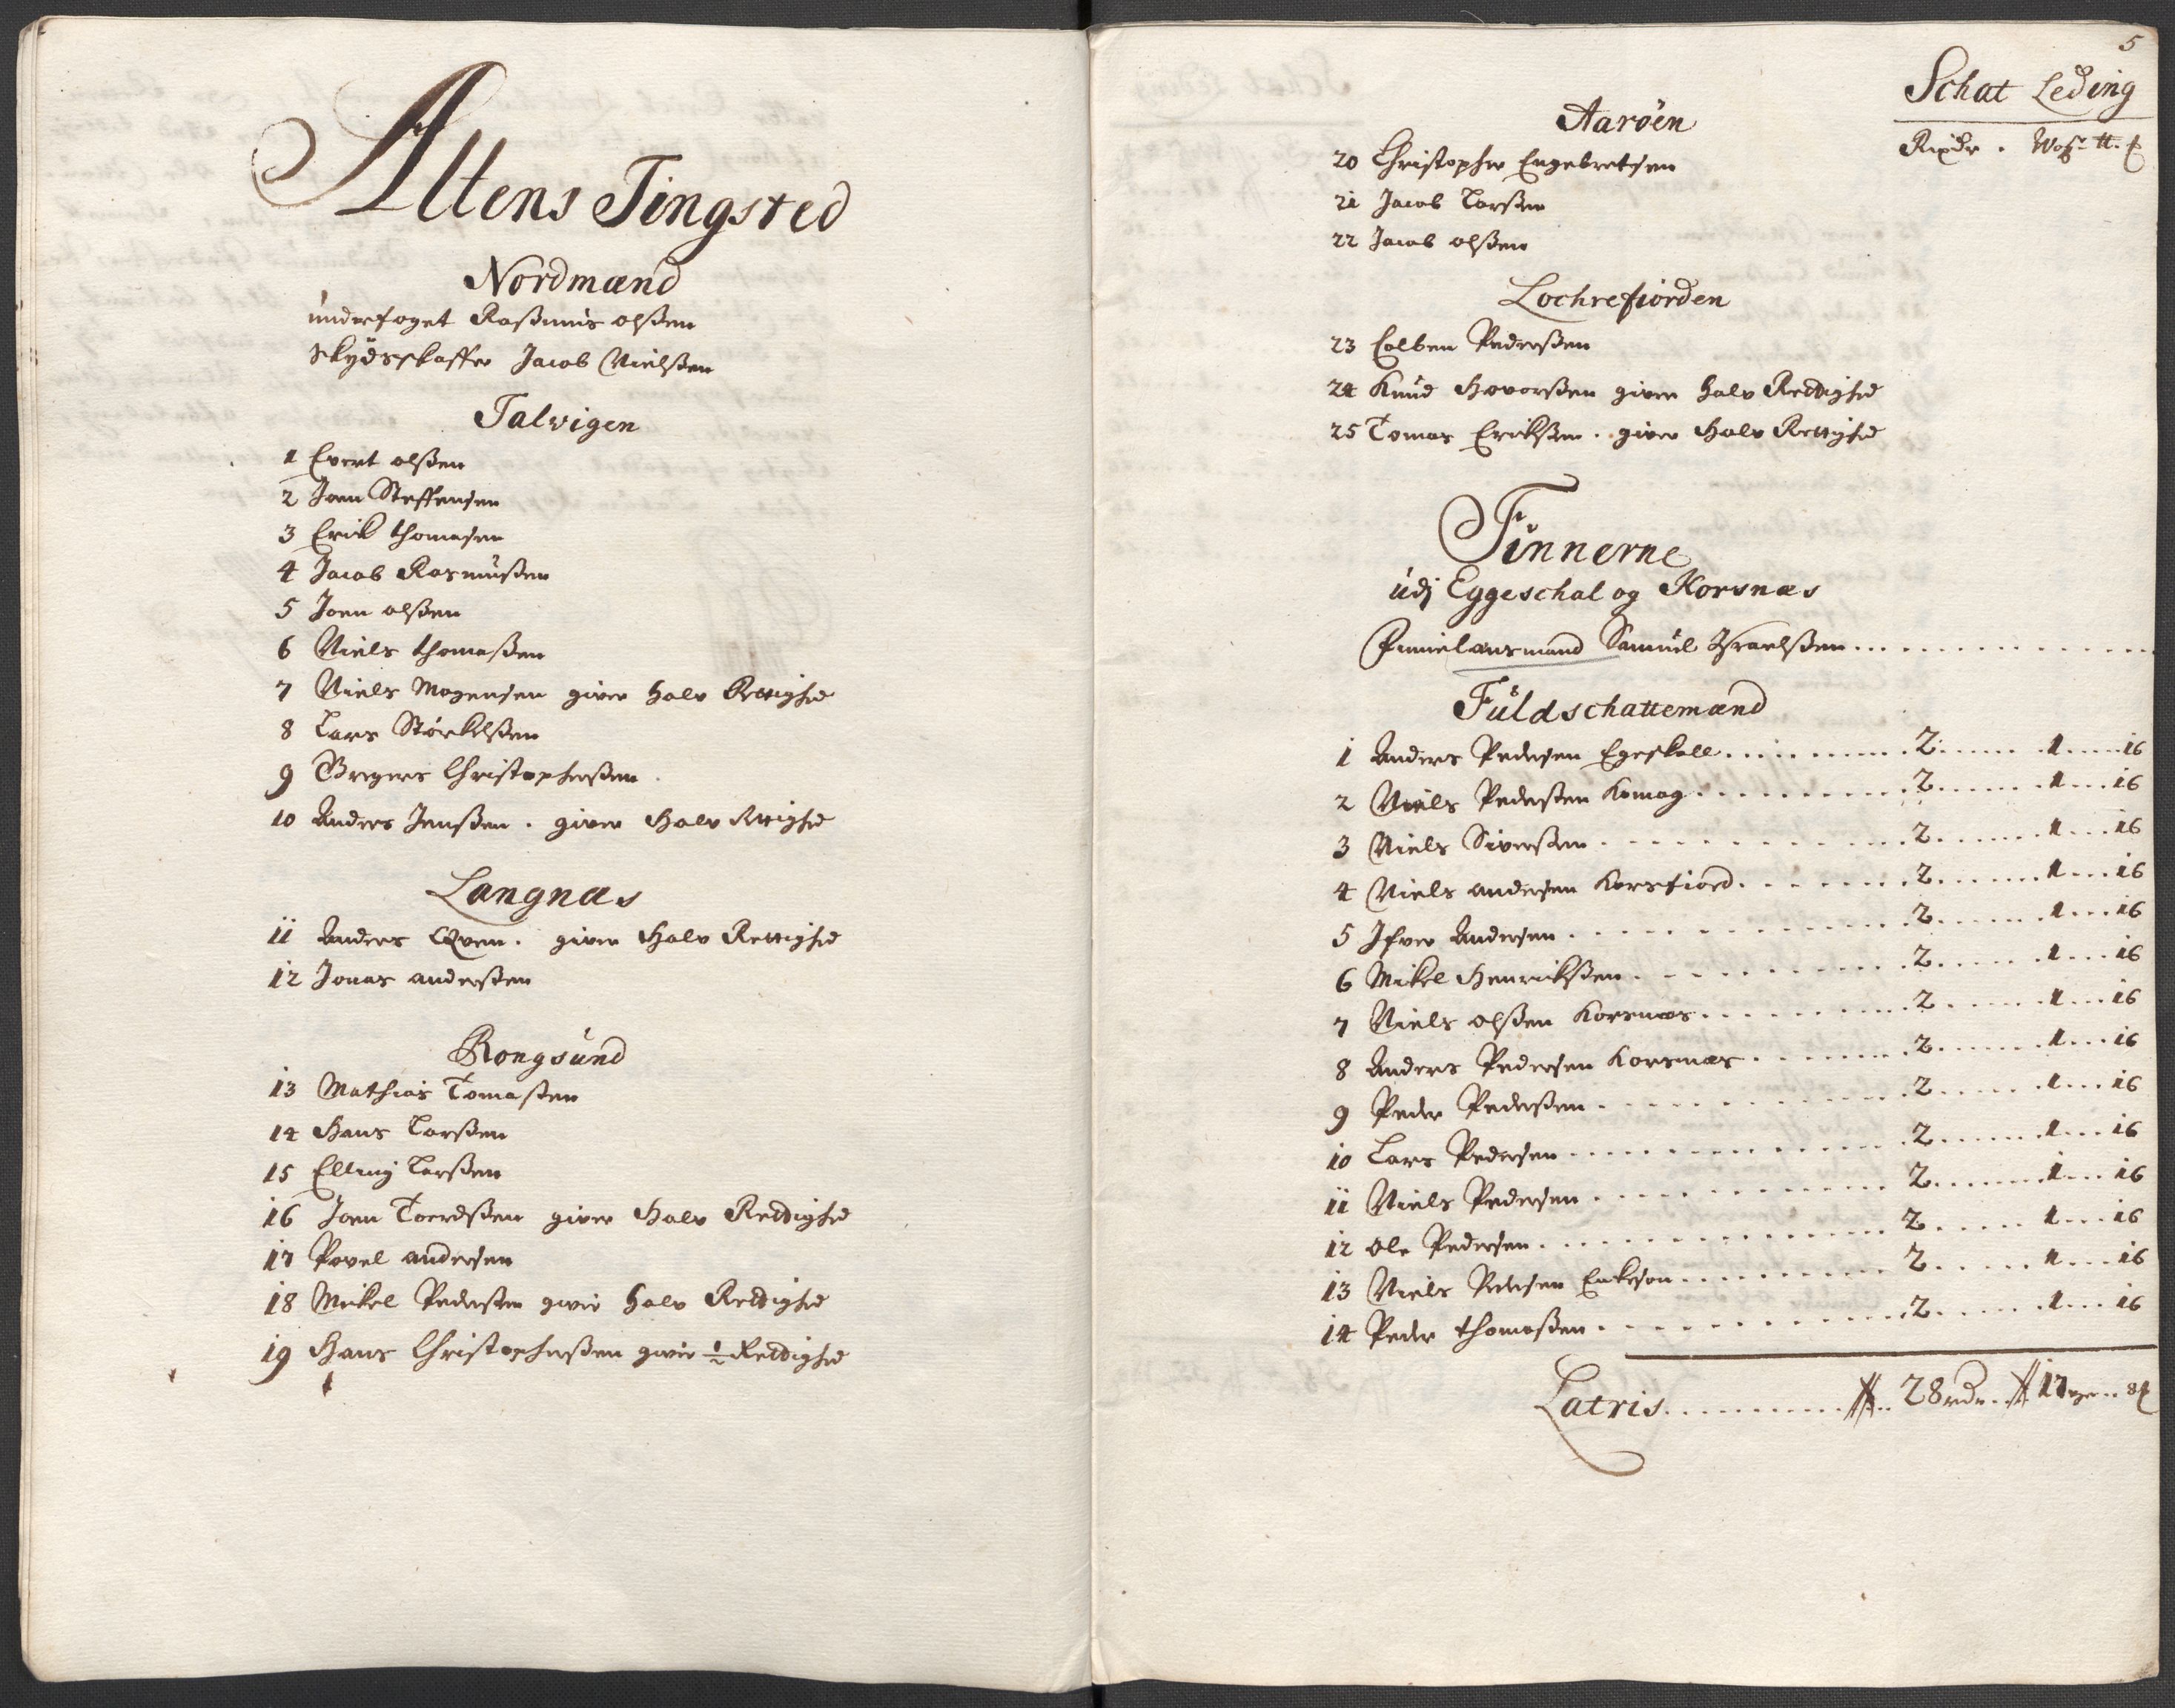 Altens Tingsted
Nordmænd
underfoget Rasmus olßen
Skydsskaffer Jacob Nielßen
Talvigen
1 Evert olßen
2 Joen Steffensen
3 Erick thomasen
4 Jacob Rasmusßen
5 Joen olßen
6 Niels thomaßen
7 Niels Mogensen giver halv Rettighed
8 Lars Størkelßen
9 Gregers Christophersen
10 Anders Jenßen. giver halv Rettighed
Langnæs
11 Anders Qven. giver halv Rettighed
12 Jonas anderßen
Rongsund
13 Mathias Tomaßen
14 Hans Larßen
15 Elling Larßen
16 Joen Toerdßen giver halv Rettighed
17 Povel andersen
18 Mikel Pederßen giver halv Rettighed
19 Hans Christopherßen giver ½ Rettighed
5
Schat Leding
Rixdr. Wog. tt.
Aarøen
20 Christopher Engebretsen
21 Jacob Larßen
22 Jacob olßen
Lochrefiorden
23 Colben Pederßen
24 Knud Havorßen giver halv Rettighed
25 Tomas Erichßen. giver halv Rettighed
Finnerne
udj Eggeschal og Korsnæs
Finnelænsmand Samuel Israelßen
Fuldschattemænd
1 Anders Pedersen Egeskall 2 1 16
2 Niels Pederßen Komag 2 1 16
3 Niels Siverßen 2 1 16
4 Niels andersen Korsfiord 2 1 16
5 Ifver Andersen 2 1 16
6 Mikel Henrichßen 2 1 16
7 Niels olßen Korsnæs 2 1 16
8 Anders Pedersen Korsnæs 2 1 16
9 Peder Pederßen 2 1 16
10 Lars Pedersen 2 1 16
11 Niels Pedersen 2 1 16
12 Ole Pedersen 2 1 16
13 Niels Pedersen 2 1 16
14 Peder thomaßen 2 1 16
Latris 28 rdr. 17 8